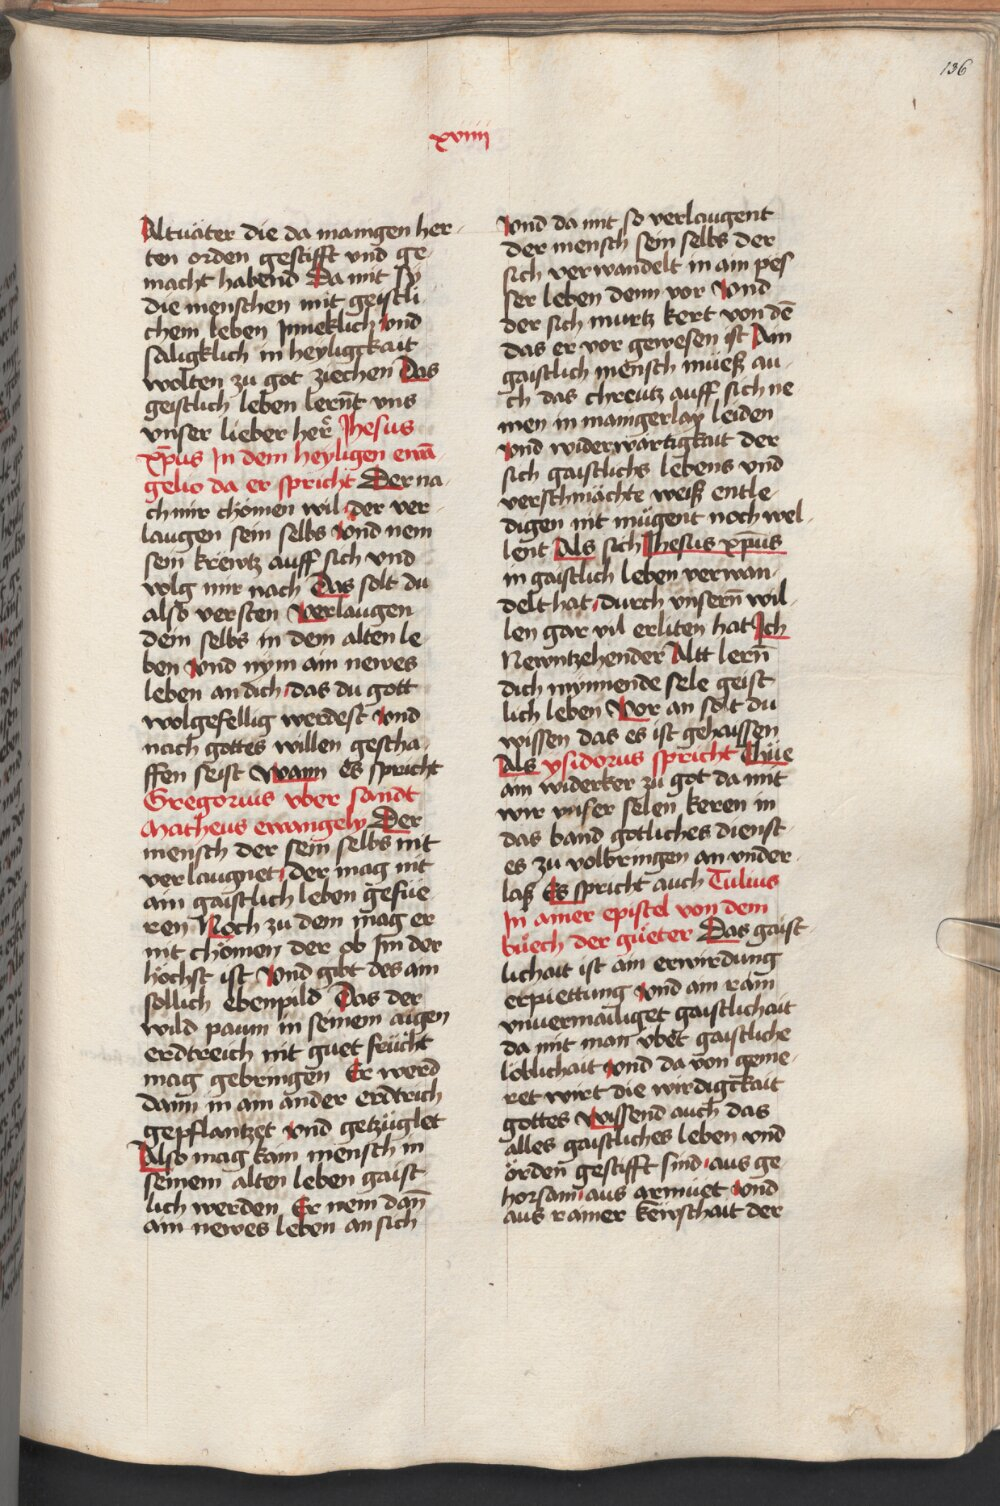 136
xviiii
Altuäter die da mainigen her-
ten orden gestifft vnd ge-
macht habend Da mit sy
die menschen mit geistli
chem leben Jnneklich vnd
saligklich in heyligkait
wolten zu got ziechen Das
geistlich leben lernt vns
vnser lieber her Jhesus
xp̄us Jn dem heyligen ewā
gelio da er spricht Der na-
ch mir chömen wil der ver-
laugen sein selbs vnd nem
sein krewtz auff sich vnd
volg mir nach Das solt du
also versten Verlaugen
dem selbs in dem alten le
ben vnd nym ain newes
leben an dich das du gott
wolgefellig werdest vnd
nach gottes willen gescha-
ffen seist Wann es spricht
Gregorius vber sandt
Matheus ewangely Der
mensch der sein selbs nit
verlaugnet der mag nit
ain gaistlich leben gefüe
ren Noch zu dem mag er
nit chömen der ob Jm der
höchst ist Vnd gibt des ain
sollich ebenpild Das der
wild paum in seinem aigen
erdtreich nit guet frücht
mag gebringen Er werd
dann in ain ander erdtrich
gepflantzet vnd getzüglet
Also mag kain mensch in
seinem alten leben gaist
lich werden Er nem dan̄
ain newes leben an sich
Vnd da mit so verlaugent
der mensch sein selbs der
sich verwandelt in ain pes
ser leben denn vor Vnd
der sich murtz kert von dē
das er vor gewesen ist Ain
gaistlich mensch mueß au-
ch das chreutz auff sich ne
men in mainigerlay leiden
vnd widerwärtigkait der
sich gaistlichs lebens vnd
verschmächte weiß entle-
digen nit mügent noch wel-
lent Als sich Jhesus xp̄us
in gaistlich leben verwan-
delt hat durch vnsern̄ wil-
len gar vil erliten hat Jch
Newntzehender Altt lern̄
dich mynnende sele geist
lich leben Vor an solt du
wissen das es ist gehaissen
Als ysidorus spricht Thüe
ain widerker zu got da mit
wir vnser selen keren in
das band gotliches dienst-
es zu volbringen an vnder-
laß Es spricht auch Tulius
Jn ainer epistel von dem
büech der güeter Das gaist-
lichait ist ain erwirdung
erpiettung Vnd am rain
vnuermäiliget gaistlichait
da mit man vbet gaistliche
löblichait vnd da von geme-
ret wirt die wirdigkait
gottes Wissend auch das
alles gaistliches leben vnd
örden gestifft sind aus ge
horsam aus armüet vnd
aus rainer kewschait der